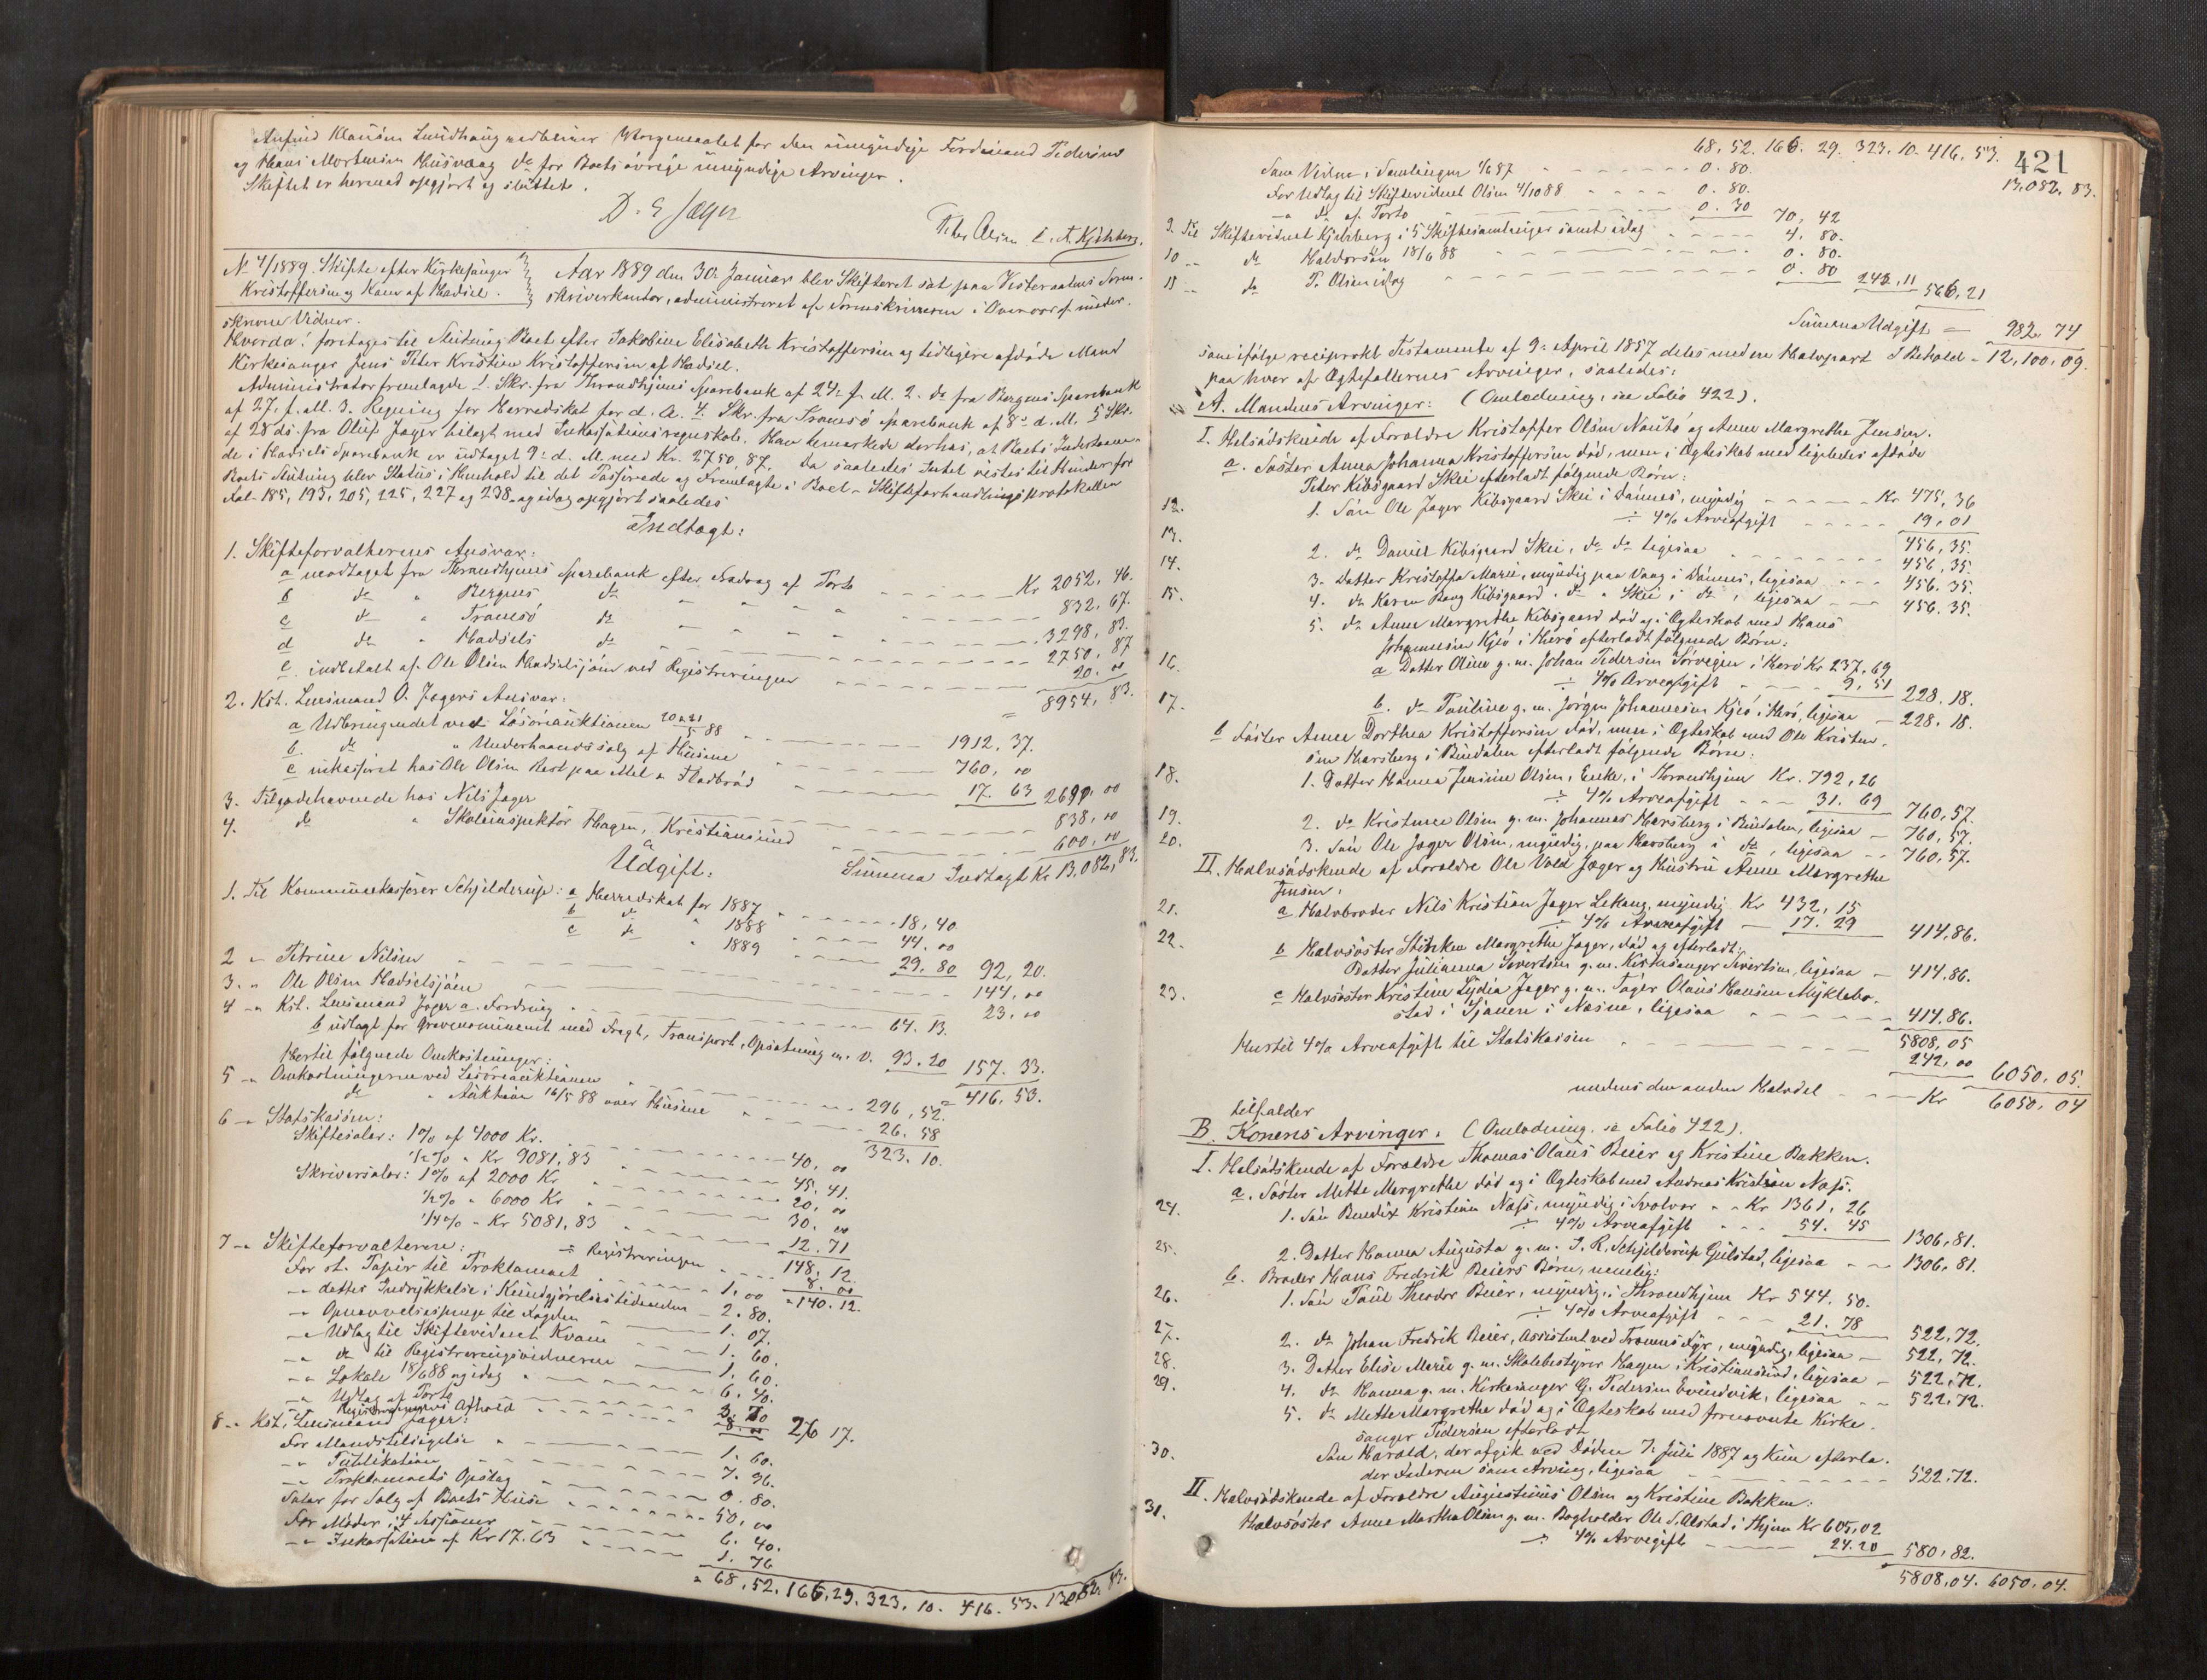 Anfind Klausen Lundhaug vedbliver Værgemaalet for den umyndige Ferdinand Pedersen
og Hans Mortensen Husvaag do for Boets øvrige umyndige Arvinger.
Skiftet er hermed opgjort og sluttet.
D. E Jæger
Peter Olsen E. A. Kjihlberg.
No 4/1889. Skifte efter Kirkesanger
Kristoffersen og Kone af Hadsel.
Aar 1889 den 30. Januar blev Skifteret sat paa Vesteraalens Soren-
skriverkontor, administreret af Sorenskriveren i Overvær af under-
skrevne Vidner.
Hvorda: foretoges til Slutning Boet efter Jakobine Elisabeth Kristoffersen og tidligere afdøde Mand
Kirkesanger Jens Peter Kristian Kristoffersen af Hadsel.
Administrator fremlagde 1. Skr. fra Throndhjems Sparebank af 24. f. M. 2. do fra Bergens Sparebank
af 27. f. M. 3. Regning for Herredskat for d. A. 4. Skr. fra Tromsø Sparebank af 8. d. M. 5 Skr.
af 28 ds. fra Oluf Jæger bilagt med Inkassationsregnskab. Han bemærkede derhos, at Boets Indestaaen-
de i Hadsels Sparebank er udtaget 9. d. M. med Kr. 2750,87. Da saaledes Intet vistes til Hinder for
Boets Slutning blev Status i Henhold til det Passerede og Fremlagte i Boet - Skifteforhandlingsprotokollen
Fol- 185, 193, 205, 225, 227 og 238 - og idag opgjort saaledes
Indtægt:
1. Skifteforvalterens Ansvar:
a modtaget fra Throndhjems Sparebank efter Fradrag af Porto Kr 2052, 46.
b do " Bergens do 832, 67.
c do " Tromsø do 3298, 83.
d do " Hadsels do 2750, 87
e. indbetalt af Ole Olsen Hadselsjøen ved Registreringen 20. 00
= 8954, 83.
2. Kst. Lensmand O. Jægers Ansvar:
a Udbringendet ved Løsøreauktionen 20 & 21/5 88 1912, 37.
b. do " Underhaandssalg af Husene 760, 00
c inkasseret hos Ole Olsen Rest paa Mel & Fladbrød 17. 63 2690, 00
3. Tilgodehavende hos Nils Jæger 838, 00
4. do " Skoleinspektør Hagen, Kristiansund 600, 00
Summa Indtægt Kr 13,082, 83.
Udgift:
1. Til Kommunekasserer Schjelderup: a Herredskat for 1887 18, 40.
b do " 1888 44. 00
c do " 1889 29. 80 92, 20.
2 - Petrine Nilsen 144, 00
3. " Ole Olsen Hadselsjøen 23, 00
4 - Kst. Lensmand Jæger a. Fordring 64. 13.
b udlagt for Gravmonument med Fragt, Transport, Opsætning m. v. 93. 20 157. 33.
Hertil følgende Omkostninger: = 416, 53.
5 - Omkostningerne ved Løsøreauktionen 296, 52.
do " Auktion 16/5 88 over Husene 26. 58
6 - Statskassen: 323. 10.
Skiftesalær: 1% af 4000 Kr. 40, 00
1/2% " Kr 9081,83 45, 41.
Skriversalær: 1% af 2000 Kr 20, 00
1/2% " 6000 Kr 30. 00
1/4% " Kr 5081, 83 12. 71
148, 12.
÷ Registreringen 8. 00
= 140. 12.
7 - Skifteforvalteren:
For st. Papir til Proklamaet 1, 00
- dettes Indrykkelse i Kundgjørelsestidenden 2. 80.
- Opnævnelsespenge til Fogden 1. 07.
- Udlæg til Skiftevidnet Kvam 1. 60.
- do til Registreringsvidnerne 1, 60.
- Lokale 18/6 88 og idag 6, 40.
- Udlæg af Porto 3. 70
- Registreringens Afhold 8. 00 26 17.
8 - Kst. Lensmand Jæger:
For Mandstilsigelse 1. 60.
- Publikation 7. 96.
- Proklamaets Opslag 0. 80.
Salær for Salg af Boets Huse 50, 00
For Møder i 4 Sessioner 6. 40.
- Inkassation af Kr 17. 63 1. 76
= 68, 52. 166, 29. 323, 10. 416. 53. 13082, 83.
421
68, 52. 166. 29. 323. 10. 416, 53. 13,082, 83.
Som Vidne i Samlingen 4/6 87 0. 80.
For Udlæg til Skiftevidnet Olsen 4/10 88 0. 80.
- do af Porto 0. 30 70, 42
9. Til Skiftevidnet Kjihlberg i 5 Skiftesamlinger samt idag 4. 80.
10 - do Haldorsen 18/6 88 0. 80.
11 - do P. Olsen idag 0. 80 243, 11 566, 21
Summa Udgift = 982, 74
I Behold = 12, 100, 09.
som ifølge reciprokt Testamente af 9. April 1857 deles med en Halvpart
paa hver af Ægtefællernes Arvinger, saaledes:
A. Mandens Arvinger: (Omlodning, se Folio 422).
I. Helsødskende af Forældre Kristoffer Olsen Nautø og Anne Margrethe Jensen.
a. Søster Anna Johanna Kristoffersen død, men i Ægteskab med ligeledes afdøde
Peter Kibsgaard Skei efterladt følgende Børn:
12. 1. Søn Ole Jæger Kibsgaard Skei i Dønnes, myndig Kr 475, 36
÷ 4% Arveafgift 19, 01
456, 35.
13. 2. do Daniel Kibsgaard Skei, do do ligesaa 456, 35.
14. 3. Datter Kristoffa Marie, myndig paa Vaag i Dønnes, ligesaa 456. 35.
15. 4. do Karen Baag Kibsgaard, do " Skei i do, ligesaa 456. 35.
5. do Anne Margrethe Kibsgaard død og i Ægteskab med Hans
Johannesen Kjeø i Herø efterladt følgende Børn:
16. a Datter Oline g. m. Johan Pedersen Sørvegen i Herø Kr 237, 69
÷ 4% Arveafgift 9, 51 228. 18.
17. b. do Pauline g. m. Jørgen Johannesen Kjeø i Herø, ligesaa 228, 18.
b Søster Anne Dorthea Kristoffersen død, men i Ægteskab med Ole Kristen-
sen Harsberg i Bindalen efterladt følgende Børn:
18. 1. Datter Hanna Jensine Olsen, Enke, i Throndhjem Kr. 792, 26
÷ 4% Arveafgift 31. 69 760, 57.
19. 2. do Kristence Olsen g. m. Johannes Harsberg i Bindalen, ligesaa 760, 57.
20. 3. Søn Ole Jæger Olsen, myndig, paa Harsberg i do, ligesaa 760, 57.
II. Halvsødskende af Forældre Ole Vold Jæger og Hustru Anne Margrethe
Jensen:
21. a Halvbroder Nils Kristian Jæger Lekang, myndig Kr 432, 15
÷ 4% Arveafgift 17. 29 414, 86.
22. b Halvsøster Margrethe Jæger, død og efterladt:
Datter Julianna Sivertsen g. m. Kirkesanger Sivertsen, ligesaa 414, 86.
23. c Halvsøster Kristine Lydia Jæger g. m. Tøger Olaus Hansen Myklebo-
stad i Sjonen i Næsne, ligesaa 414, 86.
5808, 05
Hertil 4% Arveafgift til Statskassen 242, 00 6050, 05.
medens den anden Halvdel Kr 6050, 04
tilfalder
B. Konens Arvinger: (Omlodning. se Folio 422).
I. Helsødskende af Forældre Thomas Olaus Beier og Kristine Bakken.
a. Søster Mette Margrethe død og i Ægteskab med Andreas Kristian Næss.
24. 1. Søn Bendix Kristian Næss, myndig i Svolvær Kr 1361, 26
÷ 4% Arveafgift 54. 45 1306, 81.
25. 2. Datter Hanna Augusta g. m. J. R. Schjelderup Gulstad, ligesaa 1306, 81.
b. Broder Hans Fredrik Beiers Børn, nemlig:
26. 1. Søn Paul Theodor Beier, myndig, i Throndhjem Kr 544, 50.
÷ 4% Arveafgift 21. 78 522, 72.
27. 2. do Johan Fredrik Beier, Assistent ved Tromøs Fyr, myndig, ligesaa 522, 72.
28. 3. Datter Elise Marie g. m. Skolebestyrer Hagen i Kristiansund, ligesaa 522, 72.
29. 4. do Hanna g. m. Kirkesanger G. Pedersen Evindvik, ligesaa 522, 72.
5. do Mette Margrethe død og i Ægteskab med fornævnte Kirke-
sanger Pedersen efterladt
30. Søn Harald, der afgik ved Døden 7. Juli 1887 og kun efterla-
der Faderen som Arving, ligesaa 522, 72.
II. Halvsødskende af Forældre Augustinus Olsen og Kristine Bakken:
31. Halvsøster Anne Martha Olsen g. m. Bogholder Ole S. Alstad i Thjem Kr 605, 02
÷ 4% Arvegift 24. 20 580, 82.
5808, 04. 6050, 04.